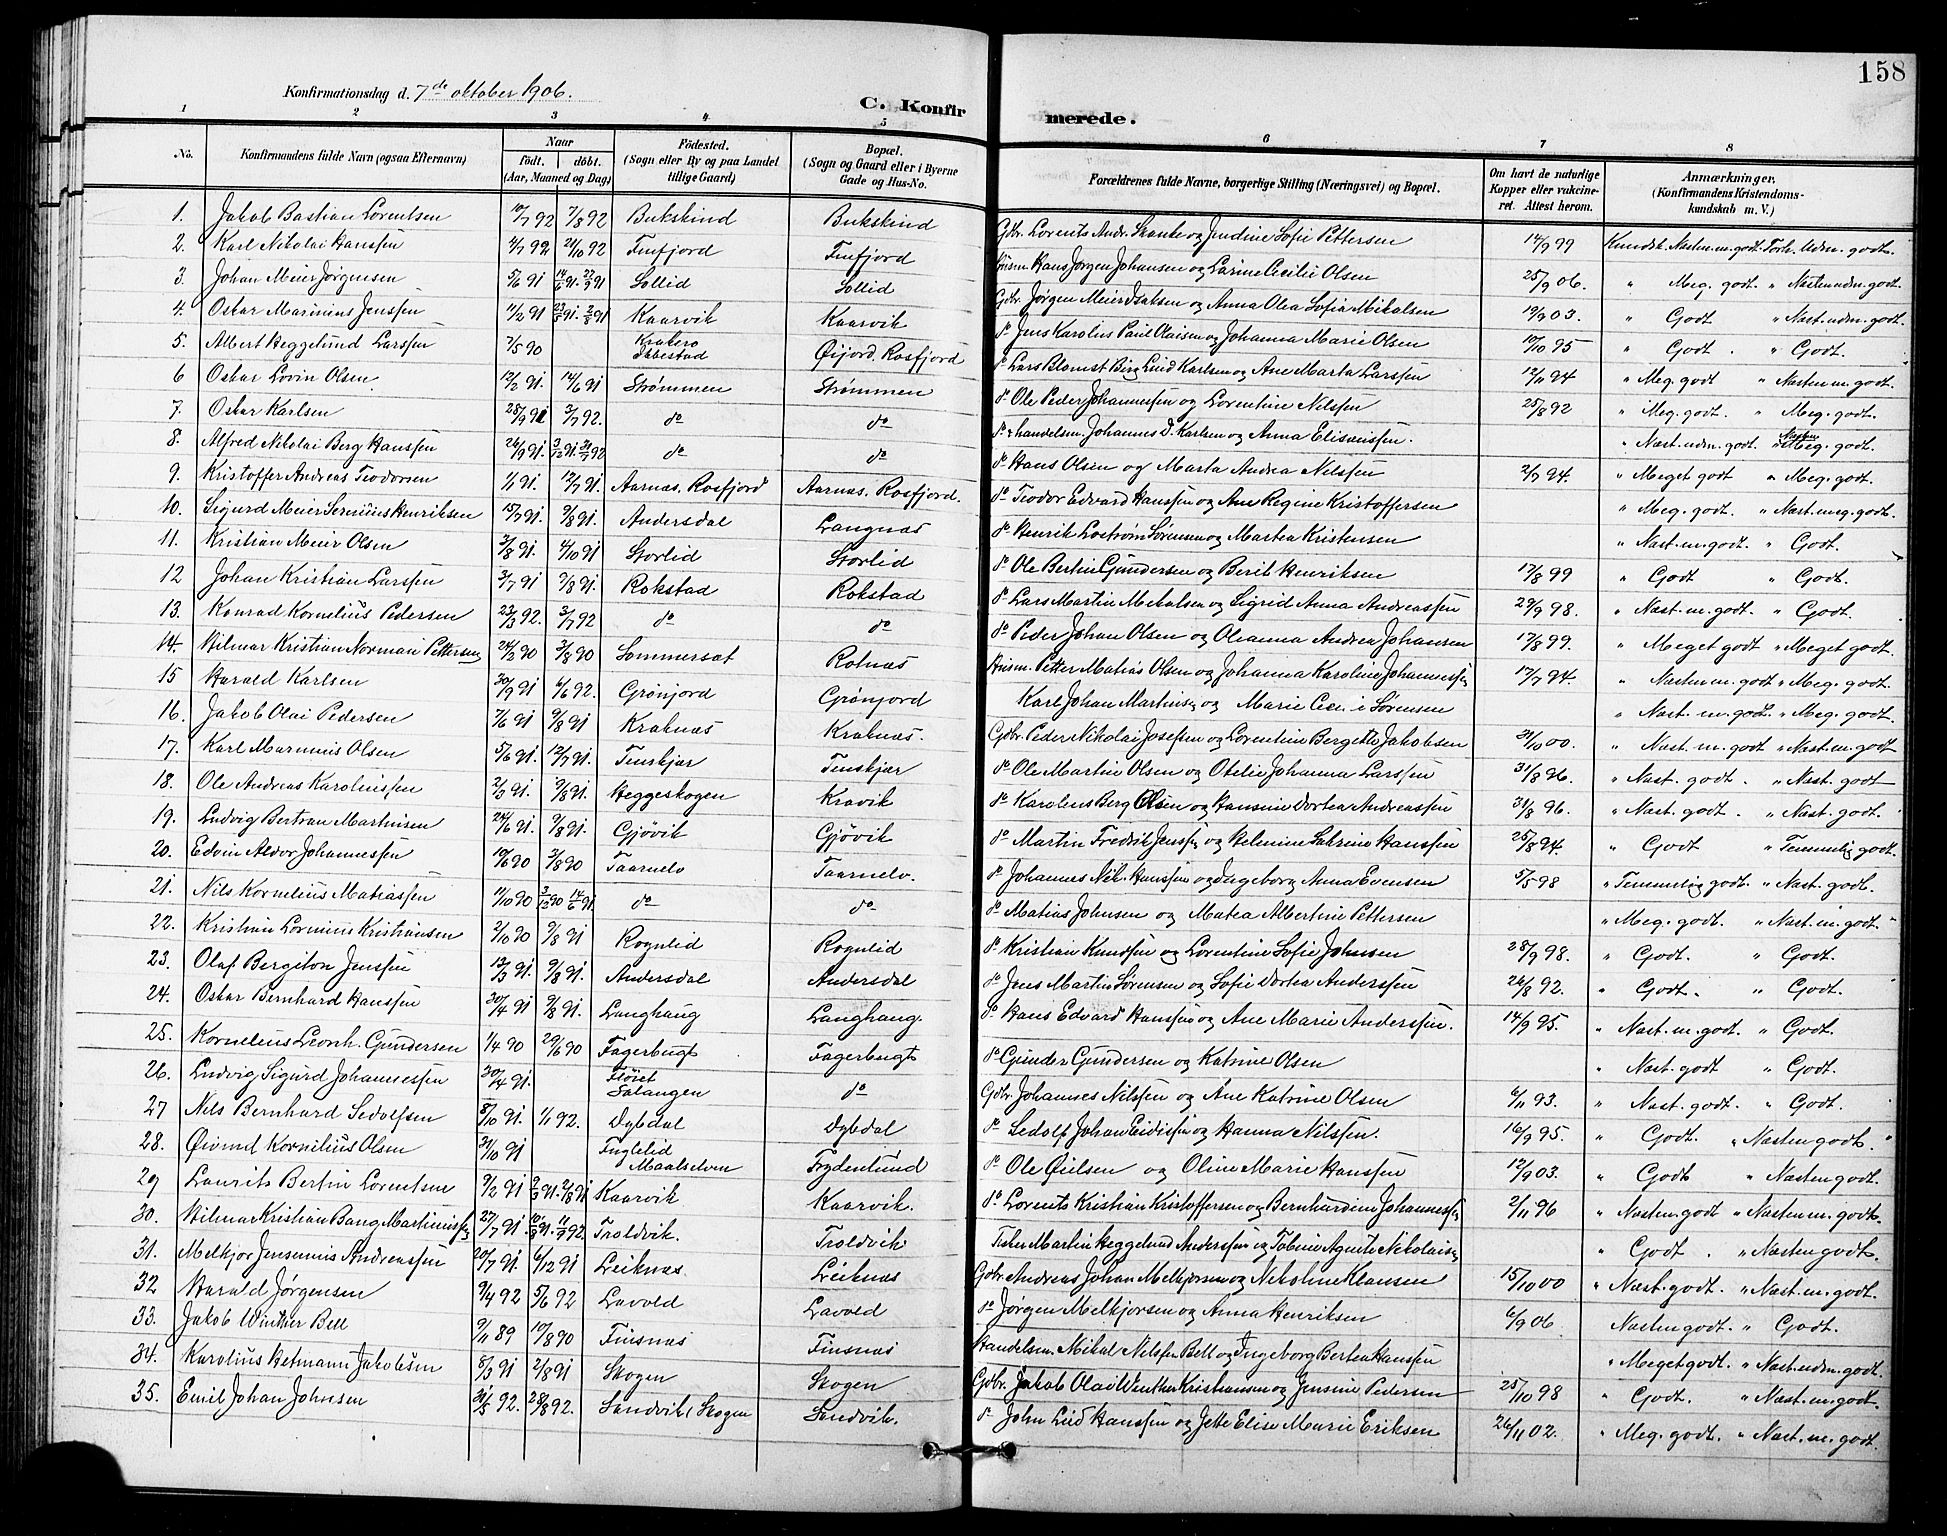 158
Konfirmationsdag d. 7de oktober 1906.
C. Konfirmerede.
1 2 3 4 5 6 7 8
No. Konfirmandens fulde Navn (ogsaa Efternavn) Naar født. døbt. (Aar, Maaned og Dag) Fødested. (Sogn eller By og paa Landet tillige Gaard) Bopæl. (Sogn og Gaard eller i Byerne Gade og Hus-No. Forældrenes fulde Navne, borgerlige Stilling (Næringsvei) og Bopæl. Om havt de naturlige Kopper eller vakcineret. Attest herom. Anmærkninger. (Konfirmandens Kristendomskundskab m. V.)
1. Jakob Bastian Lorentsen 10/7 92 7/8 92 Bukskind Bukskind Gdbr. Lorents Andr. Skanke og Jendine Sofie Pettersen 14/9 99 Kundsk. Nasten m. godt. Forh. Udm. godt.
2. Karl Nikolai Hanssen 4/7 92 21/10 92 Finfjord Finfjord Husm. Hans Jørgen Johansen og Larine Cecilie Olsen 25/9 06. " Meg. godt " Nasten udm. godt.
3. Johan Meier Jørgensen 5/6 91 14/6 91. 22/9 91 Sollid Sollid Gdbr. Jørgen Meier Isaksen og Anna Olea Sofia Mikalsen 19/9 03. " Godt " Nast. udm. godt.
4. Oskar Marinius Jenssen 11/2 91 23/5 91. 2/8 91 Kaarvik Kaarvik do Jens Karolius Paul Olaisen og Johanna Marie Olsen 10/10 95 " Godt. " Godt.
5. Albert Heggelund Larssen 7/5 90 Krakero Ibbestad Øijord. Rosfjord do Lars Blomst Berg Lind Karlsen og Ane Marta Larssen 12/11 94 " Meg. godt " Nasten m. godt.
6 Oskar Lovin Olsen 12/2 91. 14/6 91 Strømmen Strømmen do Ole Peder Johannessen og Lorentine Nilssen 25/8 92 " Meg. godt. " Meg. godt.
7. Oskar Karlsen 28/9 91 3/7 92. do do do handelsm. Johannes D. Karlsen og Anna Eliseussen. " Nast. udm. godt. " Nasten Meg. godt.
8. Alfred Nikolai Berg Hanssen 26/9 91. do do do Hans Olsen og Marta Andrea Nilssen 2/9 94. " Meget godt " Meg. godt.
9. Kristoffer Andreas Teodorsen 1/1 91. 12/7 91. Aarnas. Rosfjord Aarnas. Rosfjord. do Teodor Edvard Hanssen og Ane Regine Kristoffersen " Meg. godt. " Nast. meg. godt.
10. Sigurd Meier Sernius Henriksen 15/7 91. 9/8 91. Andersdal Langnas do Henrik Lostrøm Sørensen og Martea Kristensen " Nast. m. godt. " Godt.
11. Kristian Meier Olsen 3/8 91. 4/10 91 Storlid Storlid do Ole Bertin Gundersen og Berit Henriksen 17/8 99 " Godt " Godt.
12 Johan Kristian Larssen 3/7 91 9/8 91. Rokstad Rokstad do Lars Martin Mikalsen og Sigrid Anna Andreassen 29/9 98. " Nast. m. godt. " Godt.
13. Konrad Kornelius Pedersen 23/3 92. 3/7 92 do do do Peder Johan Olsen og Oleanna Andrea Johansen 17/8 99 " Meget godt " Meget godt.
14. Hilmar Kristian Norman Pettersen 24/2 90 3/8 90 Sommersæt Rotnas Husm. Petter Matias Olsen og Johanna Karoline Johannessen 17/7 94. " Nasten m. godt " Meg. godt.
15 Harald Karlsen 30/9 91 6/6 92. Grønjord Grønjord Karl Johan Martinsen og Marie Sørensen " Nast. m. godt. " Meg. godt.
16. Jakob Olai Pedersen 7/6 91 9/8 91 Kraknas Kraknas. Gdbr. Peder Nikolai Josefsen og Lorentine Bergette Jakobsen 31/10 00. " Nast. m. godt " Nast. m. godt
17. Karl Marinius Olsen 5/6 91. 12/7 91. Tenskjær Tenskjær do Ole Martin Olsen og Otelie Johanna Larssen 31/8 96. " Nast. godt. " Nast. godt
18. Ole Andreas Karolinssen 2/3 91. 9/8 91. Heggeskogen Kravik do Karolius Berg Olsen og Hansine Dortea Andreassen 31/8 96. " Nast. godt. " Nast. godt.
19. Ludvig Bertran Martinsen 24/6 91. 9/8 91. Gjøvik Gjøvik do Martin Fredrik Jenssen og Helenine Sakrine Hanssen 25/8 94. " Godt " Temmelig godt.
20. Edvin Aldor Johannessen 10/6 90 3/8 90 Taarnelv Taarnelv. do Johannes Nik. Hanssen og Ingeborg Anna Evensen 5/5 98 " Temmelig godt. " Nast. godt.
21. Nils Kornelius Matiassen 11/10 90 3/12 90 14/6 91 do do do Matias Johnsen og Matea Albertine Pettersen " Meg. godt. " Nast. m. godt.
22. Kristian Lorinius Kristiansen 2/10 90 9/8 91 Rognlid Rognlid do Kristian Knudsen og Lorentine Sofie Johnsen 28/9 98. " Godt. " Godt.
23. Olaf Bergiton Jenssen 13/3 91. 9/8 91. Andersdal Andersdal do Jens Martin Sørensen og Sofie Dortea Anderssen 26/8 92. " Godt. " Godt.
24. Oskar Bernhard Hanssen 30/4 91 9/8 91. Langhaug Langhaug. do Hans Edvard Hanssen og Ane Marie Anderssen. 14/9 95. " Nast. m. godt. " Godt.
25. Kornelius Leonh. Gundersen 1/4 90 29/6 90 Fagerbugt Fagerbugt do Gunder Gundersen og Katrine Olsen " Nast. godt " Godt.
26. Ludvig Sigurd Johannessen 30/4 91. Fløiet Salangen do Gdbr. Johannes Nilssen og Ane Katrine Olsen 6/11 93. " Nast. godt. " Godt.
27 Nils Bernhard Sedolfsen 8/10 91. 1/1 92. Dybdal Dybdal do Sedolf Johan Eidissen og Hanna Nilssen. 16/9 95. " Godt. " Nasten godt.
28. Øivind Kornilius Olsen 31/10 91 Fuglelid Maalselven Frydenlund do Ole Øielsen og Oline Marie Hanssen 12/9 03. " Godt " Nasten godt.
29 Laurits Bertin Lorentsen 9/2 91 2/8 91 Kaarvik Kaarvik. do Lorents Kristian Kristoffersen og Bernhardine Johannessen 2/11 96 " Nasten godt " Nasten m. godt.
30. Hilmar Kristian Bang Martinussen 27/7 91. Troldvik. Troldvik. Fisker Martin Heggelund Anderssen og Tobine Agnete Nikolaisen " Godt. " Nasten godt.
31. Melkjor Jensenius Andreassen 20/7 91. 6/12 91 Leiknas. Leiknas Gdbr. Andreas Johan Melkjorsen og Nikoline Klausen 15/10 00 " Nast. godt. " Nast. m. godt.
32 Harald Jørgensen 9/4 92 5/6 92 Lavold Lavold do Jørgen Melkjorsen og Anna Henriksen 6/9 06 Nasten godt. " Godt.
33. Jakob Winther Bell 9/11 89 10/8 90 Finsnas Finsnas Handelsm. Mikal Nilssen Bell og Ingeborg Bertea Hanssen " Meget godt. " Nast. udm. godt.
34. Karolius Hetmann Jakobsen 8/3 91 2/8 91 Skogen Skogen Gdbr. Jakob Olai Winther Kristiansen og Jensine Pedersen 25/10 98 " Godt. " Nast. m. godt.
35. Emil Johan Johnsen 31/5 92. 28/8 92. Sandvik, Skogen Sandvik. do John Lind Hanssen og Jette Elise Marie Eriksen 26/11 02. " Meg. godt. " Nast. m. godt.